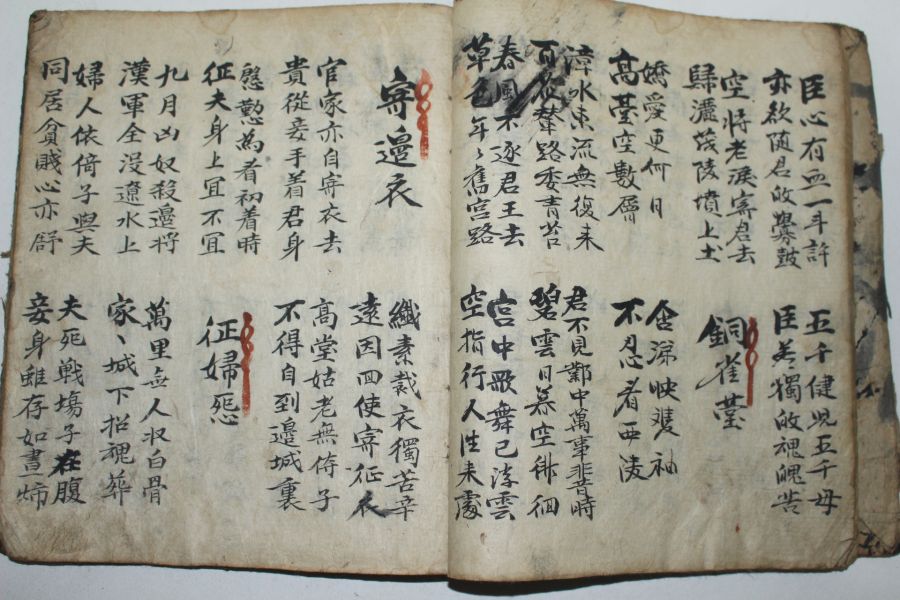 臣心有血一斗許
亦欲随君收釁鼓
五千健児五千母
臣若獨收魂魄苦
空将老淚寄君去
歸灑茂陵墳上土
銅雀臺
嬌愛更何日
高臺空數層
含涕映雙袖
不忍看西陵
漳水東流無復来
百花輦路委青苔
君不見鄴中萬事非昔時
碧雲日暮空徘徊
春風不逐君王去
草色年々舊宮路
宮中歌舞已浮雲
空指行人往来處
寄邊衣
纖素裁衣獨苦辛
遠因回使寄征衣
官家亦自寄衣去
貴從妾手着君身
高堂姑老無侍子
不得自到邊城裏
慇懃為看初着時
征夫身上冝不冝
征婦怨
九月凶奴殺邊将
漢軍全沒遼水上
萬里無人収白骨
家〻城下招魂葬
婦人依倚子與夫
同居貧賤心亦舒
夫死戦場子在腹
妾身雖存如晝燭